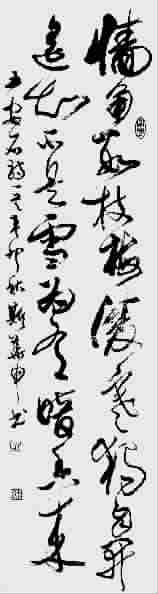 墙角数枝梅凌寒独自开
遥知不是雪为有暗香来
王安石诗一首辛卯秋斯华申书